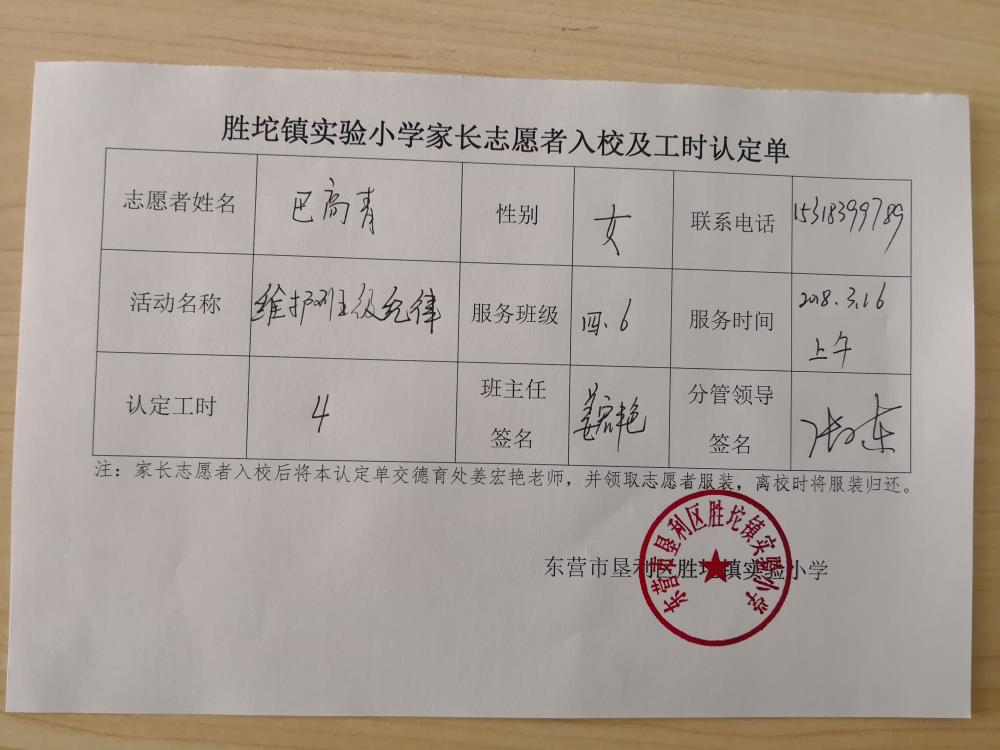 胜坨镇实验小学家长志愿者入校及工时认定单
志愿者姓名 巴高青 性别 女 联系电话 15318399789
活动名称 维护班级纪律 服务班级 四.6 服务时间 2018.3.16
上午
认定工时 4 班主任签名 姜宏艳 分管领导签名
注：家长志愿者入校后将本认定单交德育处姜宏艳老师，并领取志愿者服装，离校时将服装归还。
东营市垦利区胜坨镇实验小学
东营市垦利区胜坨镇实验小学